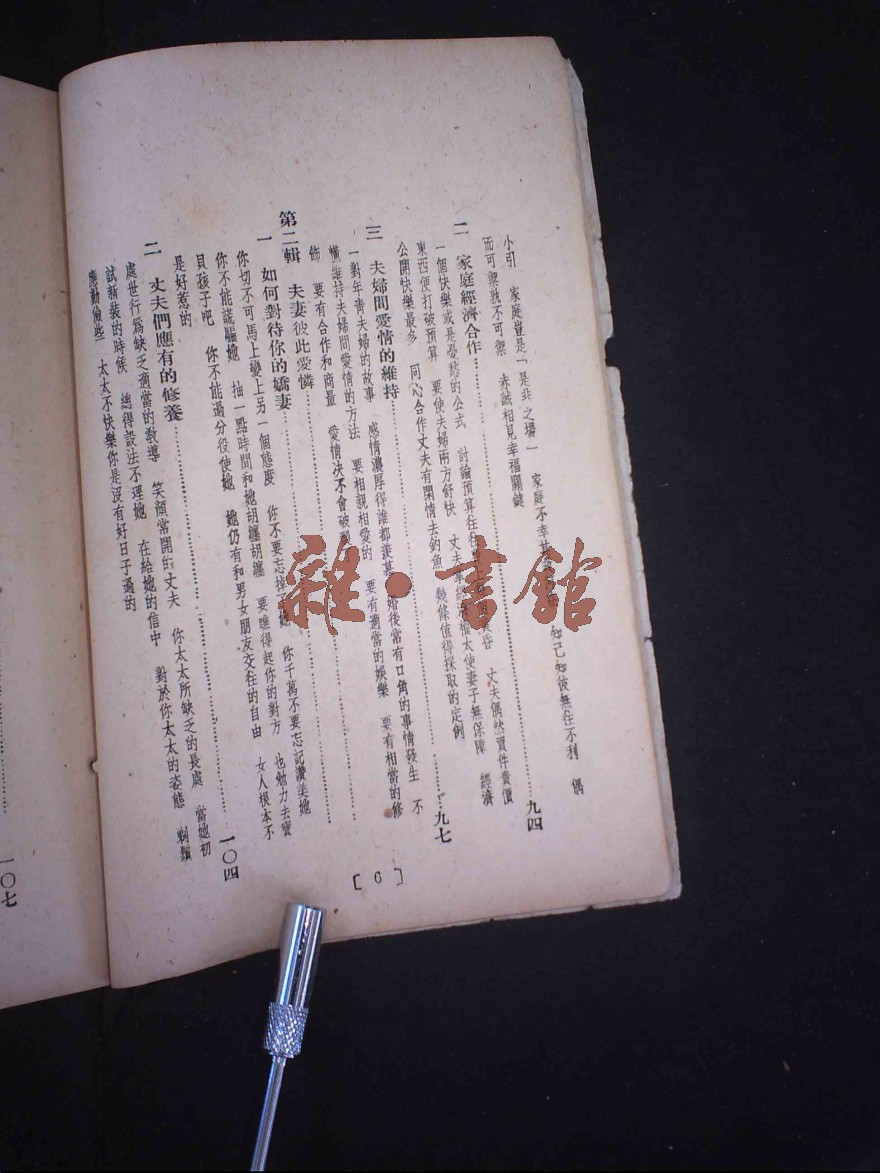 小引　家庭豈是「是非之場」　家庭不幸　知己知彼無往不利　偶
而可禦孰不可禦　赤誠相見幸福關鍵
二　家庭經濟合作……九四
一個快樂或是憂愁的公式　討論預算往往　丈夫偶然買件貴價
東西便打破預算　要使夫婦兩方舒快　丈夫　太使妻子無保障　經濟
公開快樂最多　同心合作丈夫有閑情去釣魚　幾條值得採取的定例
三　夫婦間愛情的維持……九七
一對年青夫婦的故事　感情濃厚得誰都羨慕　婚後常有口角的事情發生　不
懂維持夫婦間愛情的方法　要相親相愛的　要有適當的娛樂　要有相當的修
飾　要有合作和商量　愛情決不會破
第二輯　夫妻彼此愛憐……
一　如何對待你的嬌妻……
你切不可馬上變上另一個態度　你不要忘掉　她　你千萬不要忘記讚美她
你不能謊騙她　抽一點時間和她胡纏胡纏　要瞧得起你的對方　也勉力去寶
貝孩子吧　你不能過分役使她　她仍有和男女朋友交往的自由　女人根本不
是好惹的
二　丈夫們應有的修養……一〇四
處世行爲缺乏適當的教導　笑顏常開的丈夫　你太太所缺乏的長處　當她初
試新裝的時候　總得設法不理她　在給她的信中　對於你太太的姿態　剃鬚
應勤儉些　太太不快樂你是沒有好日子過的
[6]
一〇七
雜·書館